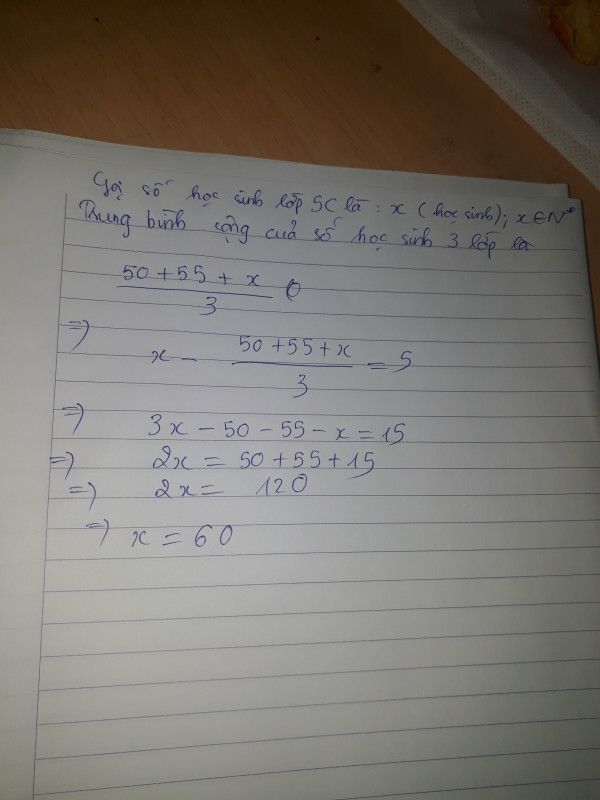 Gọi số học sinh lớp 5C là : x (học sinh); x ∈ N*
Trung bình cộng của số học sinh 3 lớp là
50 + 55 + x
3
=>
x - (50 + 55 + x)/3 = 5
=> 3x - 50 - 55 - x = 15
=> 2x = 50 + 55 + 15
=> 2x = 120
=> x = 60